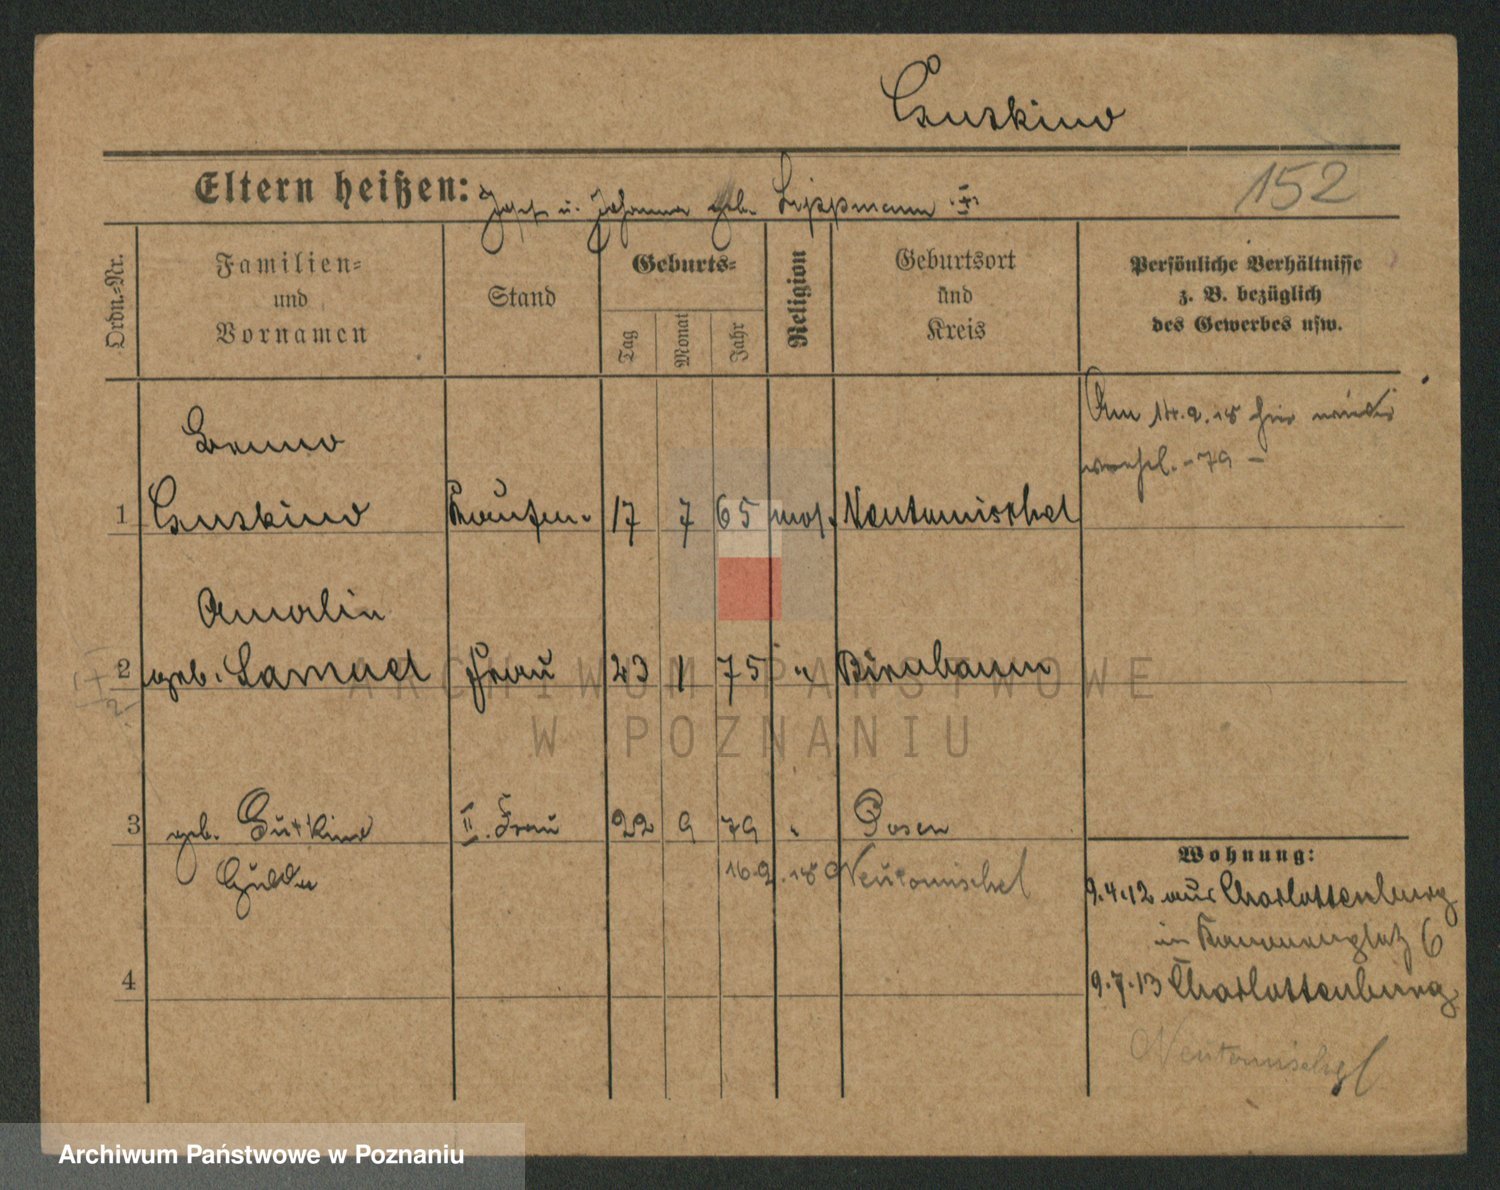 152
Eltern heißen: Josef u. Johanna geb. Lippmann
Ordn.-Nr.
Familien-
und
Vornamen
Stand
Geburts-
Tag
Monat
Jahr
Religion
Geburtsort
und
Kreis
Persönliche Verhältnisse
z. B. bezüglich
des Gewerbes usw.
Am 14.2.18 hier wieder
79 –
Benno
1 17 7 65 mos. Neutomischel
Amalie
2 geb. Samuel Frau 23 1 75 " Birnbaum
3 geb. Gutkind II. Frau 22 9 79 " Posen
Hulda
16.2.18 Neutomischel
4
Wohnung:
9.4.12 aus Charlottenburg
6
9.7.13 Charlottenburg
Neutomischel
ARCHIWUM PAŃSTWOWE
W POZNANIU
Archiwum Państwowe w Poznaniu